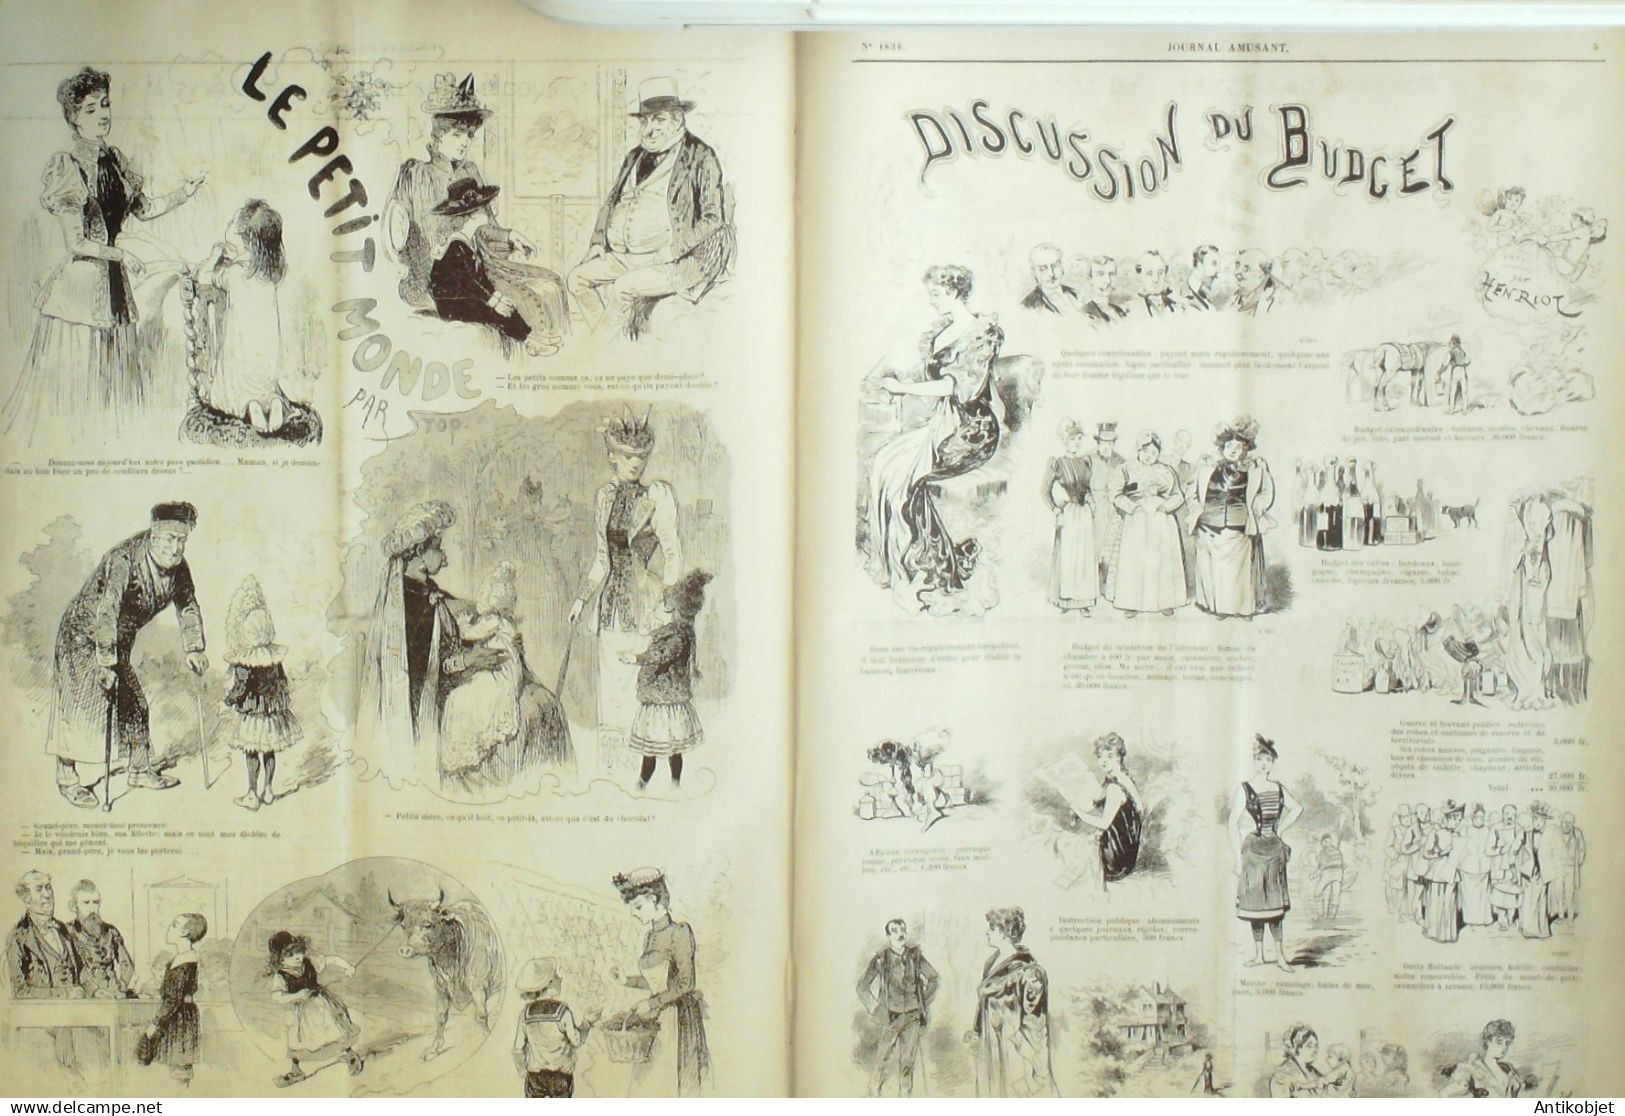 LE PETIT MONDE
PAR
TOP.
— Donnez-nous aujourd'hui notre pain quotidien.... Maman, si je deman-
dais au bon Dieu un peu de confiture dessus ?...
— Les petits comme ça, ça ne paye que demi-place ?
— Et les gros comme vous, est-ce qu'ils payent double ?
— Grand-père, menez-moi promener.
— Je le voudrais bien, ma fillette; mais ce sont mes diables de
béquilles qui me gênent.
— Mais, grand-père, je vous les porterai ...
— Petite mère, ce qu'il boit, ce petit-là, est-ce que c'est du chocolat ?
N° 1834.
JOURNAL AMUSANT.
5
DISCUSSION DU BUDGET
PAR
HENRIOT
Quelques contribuables : payent assez régulièrement, quelques-uns
après sommation. Signe particulier : donnent plus facilement l'argent
de leur femme légitime que le leur.
Budget extraordinaire : voitures, écuries, chevaux. Bourse
de jeu, loto, pari mutuel et bonheur, 30,000 francs.
Budget des cultes : bordeaux, bour-
gogne, champagne, cigares, tabac,
caniche, liqueurs diverses, 5,000 fr.
Dans une vie régulièrement irrégulière,
il faut beaucoup d'ordre pour établir la
balance. Inscrivons...
Budget du ministère de l'intérieur : femme de
chambre à 600 fr. par mois, cuisinière, cocher,
groom, idem. Ma mère... il est vrai que celle-ci
n'est qu'en location; ménage, terme, concierges,
ci, 30,000 francs.
Guerre et travaux publics : entretien
des robes et costumes de réserve et de
territoriale 3,000 fr.
Six robes neuves, peignoirs, lingerie,
bas et chemises de soie, poudre de riz,
objets de toilette, chapeaux, articles
divers 27,000 fr.
Total ... 30,000 fr.
Affaires étrangères : perruque
rousse, perruque noire, faux mol-
lets, etc., etc., 1,200 francs.
Instruction publique : abonnements
à quelques journaux rigolos; corres-
pondance particulière, 500 francs.
Marine : canotage, bains de mer,
eaux, 5,000 francs.
Dette flottante : usuriers, bottier, couturier;
notes renouvelées. Prêts du mont-de-piété,
créanciers à arroser, 15,000 francs.
Antikobjet
delcampe.net